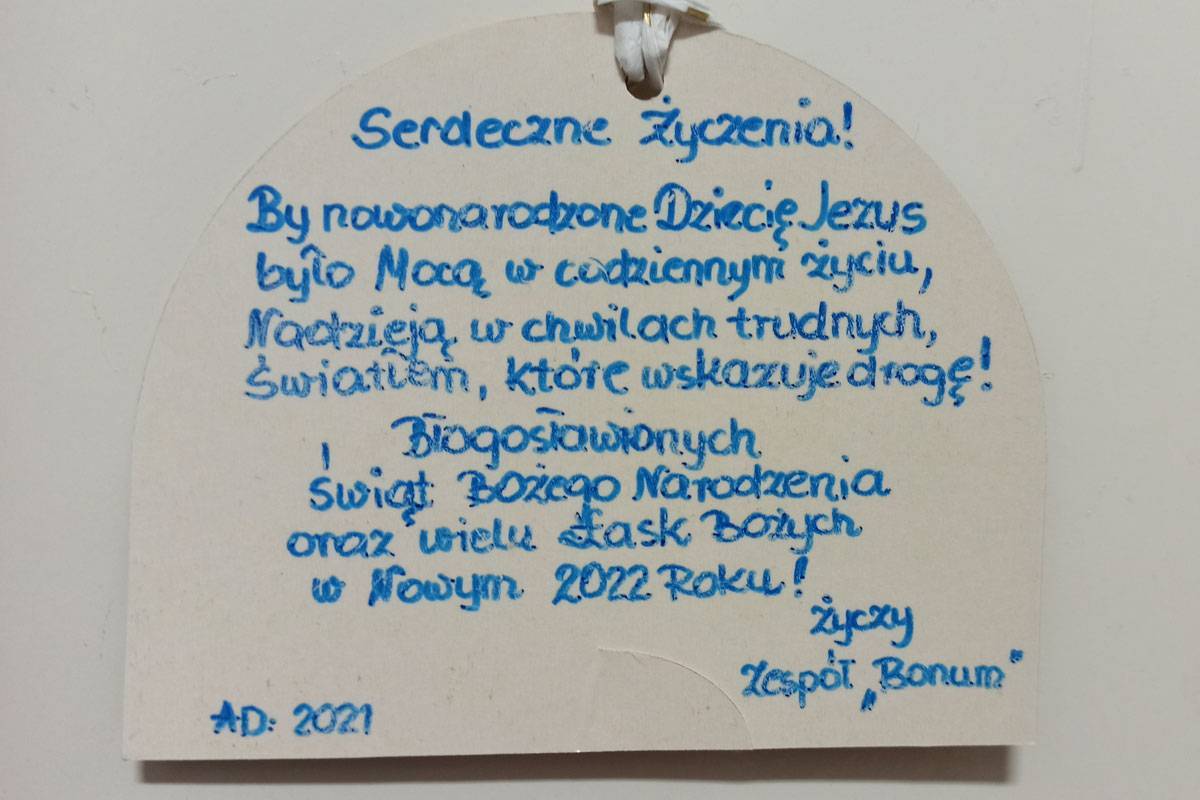 Serdeczne Życzenia!
By nowonarodzone Dziecię Jezus
było Mocą w codziennym życiu,
Nadzieją w chwilach trudnych,
światłem, które wskazuje drogę!
Błogosławionych
Świąt Bożego Narodzenia
oraz wielu Łask Bożych
w Nowym 2022 Roku!
życzy
Zespół „Bonum"
AD: 2021